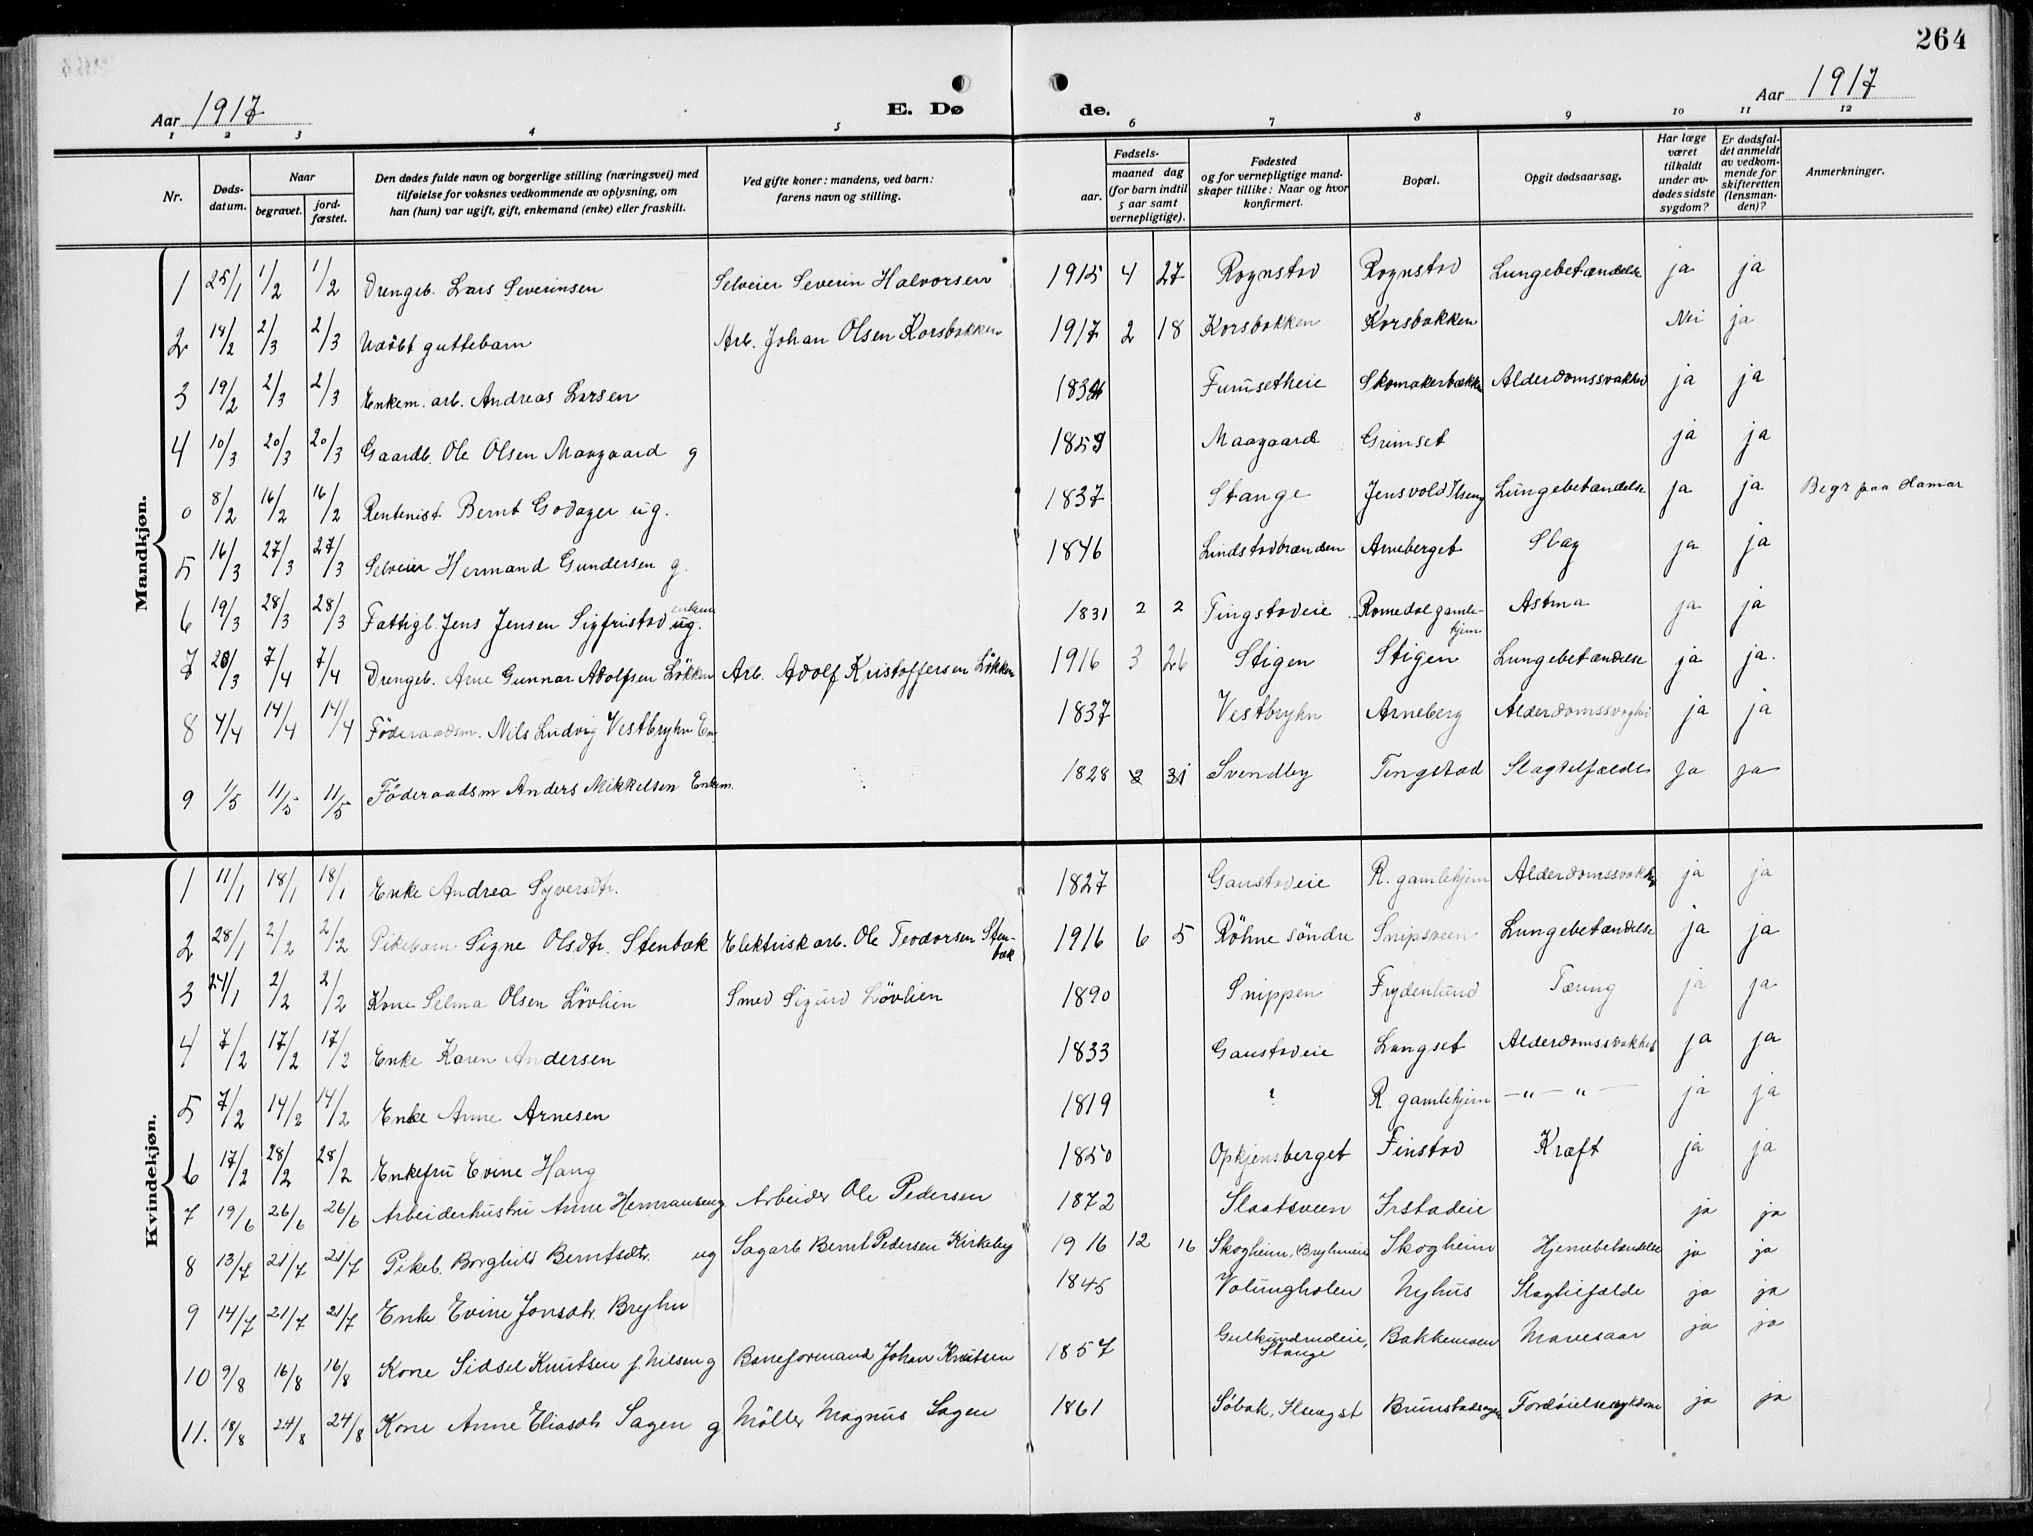 264
Aar 1917
E. Dø
de.
Aar 1917
1 2 3 4 5 6 7 8 9 10 11 12
Nr.
Døds-
datum.
Naar
begravet.
jord-
fæstet.
Den dødes fulde navn og borgerlige stilling (næringsvei) med
tilføielse for voksnes vedkommende av oplysning, om
han (hun) var ugift, gift, enkemand (enke) eller fraskilt.
Ved gifte koner: mandens, ved barn:
farens navn og stilling.
Fødsels-
aar.
maaned dag
(for barn indtil
5 aar samt
vernepligtige).
Fødested
og for vernepligtige mand-
skaper tillike: Naar og hvor
konfirmert.
Bopæl.
Opgit dødsaarsag.
Har læge
været
tilkaldt
under av-
dødes sidste
sygdom?
Er dødsfal-
det anmeldt
av vedkom-
mende for
skifteretten
(lensman-
den)?
Anmerkninger.
Mandkjøn.
1 25/1 1/2 1/2 Drengeb. Lars Severinsen Selveier Severin Halvorsen 1915 4 27 Rognstod Rognstod Lungebetændelse ja ja
2 18/2 2/3 2/3 Udøbt guttebarn Arb. Johan Olsen Korsbakken 1917 2 18 Korsbakken Korsbakken Nei ja
3 19/2 2/3 2/3 Enkem. arb. Andreas Larsen Furusetheie Skomakerbakken Alderdomssvakhed ja ja
4 10/3 20/3 20/3 Gaardb. Ole Olsen Maagaard g 1859 Maagaard Grimset ja ja
0 8/2 16/2 16/2 Rentenist Bernt Godager ug. 1837 Stange Jensvold Ilseng Lungebetændelse ja ja Begr paa Hamar
5 16/3 27/3 27/3 Selveier Hermand Gundersen g. 1846 Lindstodbrænden Arneberget Slag ja ja
6 19/3 28/3 28/3 Fattigl. Jens Jensen Sigfristad ug. enkem 1831 2 2 Tingstadeie Romedal gamle-
hjem Astma ja ja
7 28/3 7/4 7/4 Drengeb. Arne Gunnar Adolfsen Løkken Arb. Adolf Kristoffersen Løkken 1916 3 26 Stigen Stigen Lungebetændelse ja ja.
8 4/4 14/4 14/4 Föderaadsm. Nils Ludvig Vestbryhn Em 1837 Vestbryhn Arneberg Alderdomssvaghed ja ja
9 1/5 11/5 11/5 Föderaadsm Anders Mikkelsen Enkem. 1828 3 31 Svendby Tingstad Slagtilfælde ja ja
Kvindekjøn.
1 11/1 18/1 18/1 Enke Andrea Syversdtr. 1827 Gaustadeie R. gamlehjem Alderdomssvakhet ja ja
2 28/1 2/2 2/2 Pikebarn Signe Olsdtr. Stenbæk Elektrisk arb. Ole Teodorsen Sten-
bæk 1916 6 5 Röhne söndre Snipsveen Lungebetændelse ja ja
3 24/1 2/2 2/2 Kone Selma Olsen Lövlien Smed Sigurd Lövlien 1890 Snippen Frydenlund Tæring ja ja
4 7/2 17/2 17/2 Enke Karen Andersen 1833 Gaustadeie Langset Alderdomssvakhet ja ja
5 7/2 14/2 14/2 Enke Anne Arnesen 1819 ? R. gamlehjem — " — " — ja ja
6 17/2 28/2 28/2 Enkefru Evine Haug 1850 Opkjensberget Finstad Kræft ja ja
7 19/6 26/6 26/6 Arbeiderhustru Anne Hermansen g Arbeider Ole Pedersen 1872 Slaatsveen Irstadeie ja ja
8 13/7 21/7 21/7 Pikeb. Borghild Berntsdtr. ug Sagarb Bernt Pedersen Kirkeby 1916 12 16 Skogheim, Skogheim Hjernebetændelse ja ja
9 14/7 21/7 21/7 Enke Evine Jonsdtr. Bryhn 1845 Volungholen Nyhus Slagtilfælde ja ja
10 9/8 16/8 16/8 Kone Sidsel Knutsen f. Nilsen g Baneformand Johan Knutsen 1857 Stange Bakkemoen Mavesaar ja ja
11. 18/8 24/8 24/8 Kone Anne Eliasdtr Sagen g Möller Magnus Sagen 1861 Söbak, Brunstadsagen Fordöielsessykdom ja ja